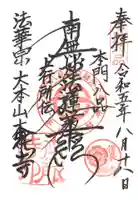 奉拝
令和五年八月十八日
本門八品
南無妙法蓮華経
上行所伝
法華宗大本山